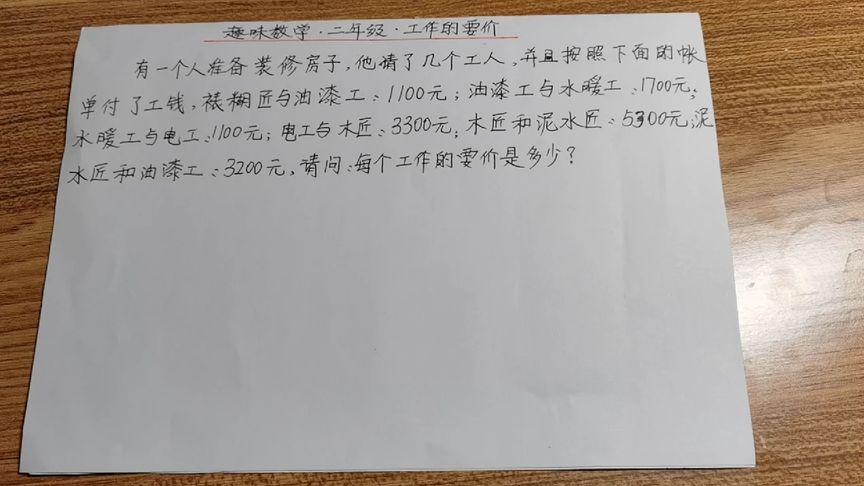 趣味数学·二年级·工作的要价
有一个人准备装修房子,他请了几个工人,并且按照下面的帐
单付了工钱,裱糊匠与油漆工:1100元;油漆工与水暖工:1700元;
水暖工与电工:1100元;电工与木匠:3300元;木匠和泥水匠:5300元;泥
水匠和油漆工:3200元,请问:每个工作的要价是多少?